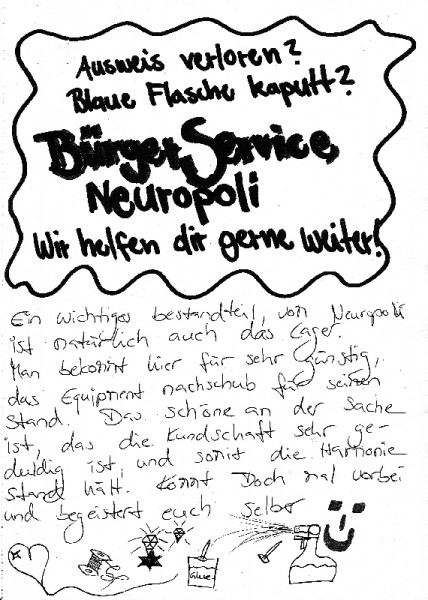 Ausweis verloren?
Blaue Flasche kaputt?
Bürger Service
Neuropoli
Wir helfen dir gerne weiter!
Ein wichtiges bestandteil, von Neuropoli
ist natürlich auch das Lager.
Man bekommt hier für sehr günstig,
das Equipment nachschub für seinen
Stand. Das schöne an der Sache
ist, das die Kundschaft sehr ge-
duldig ist, und somit die Harmonie
Stand hält. Kommt Doch mal vorbei
und begeistert euch selber
Glue